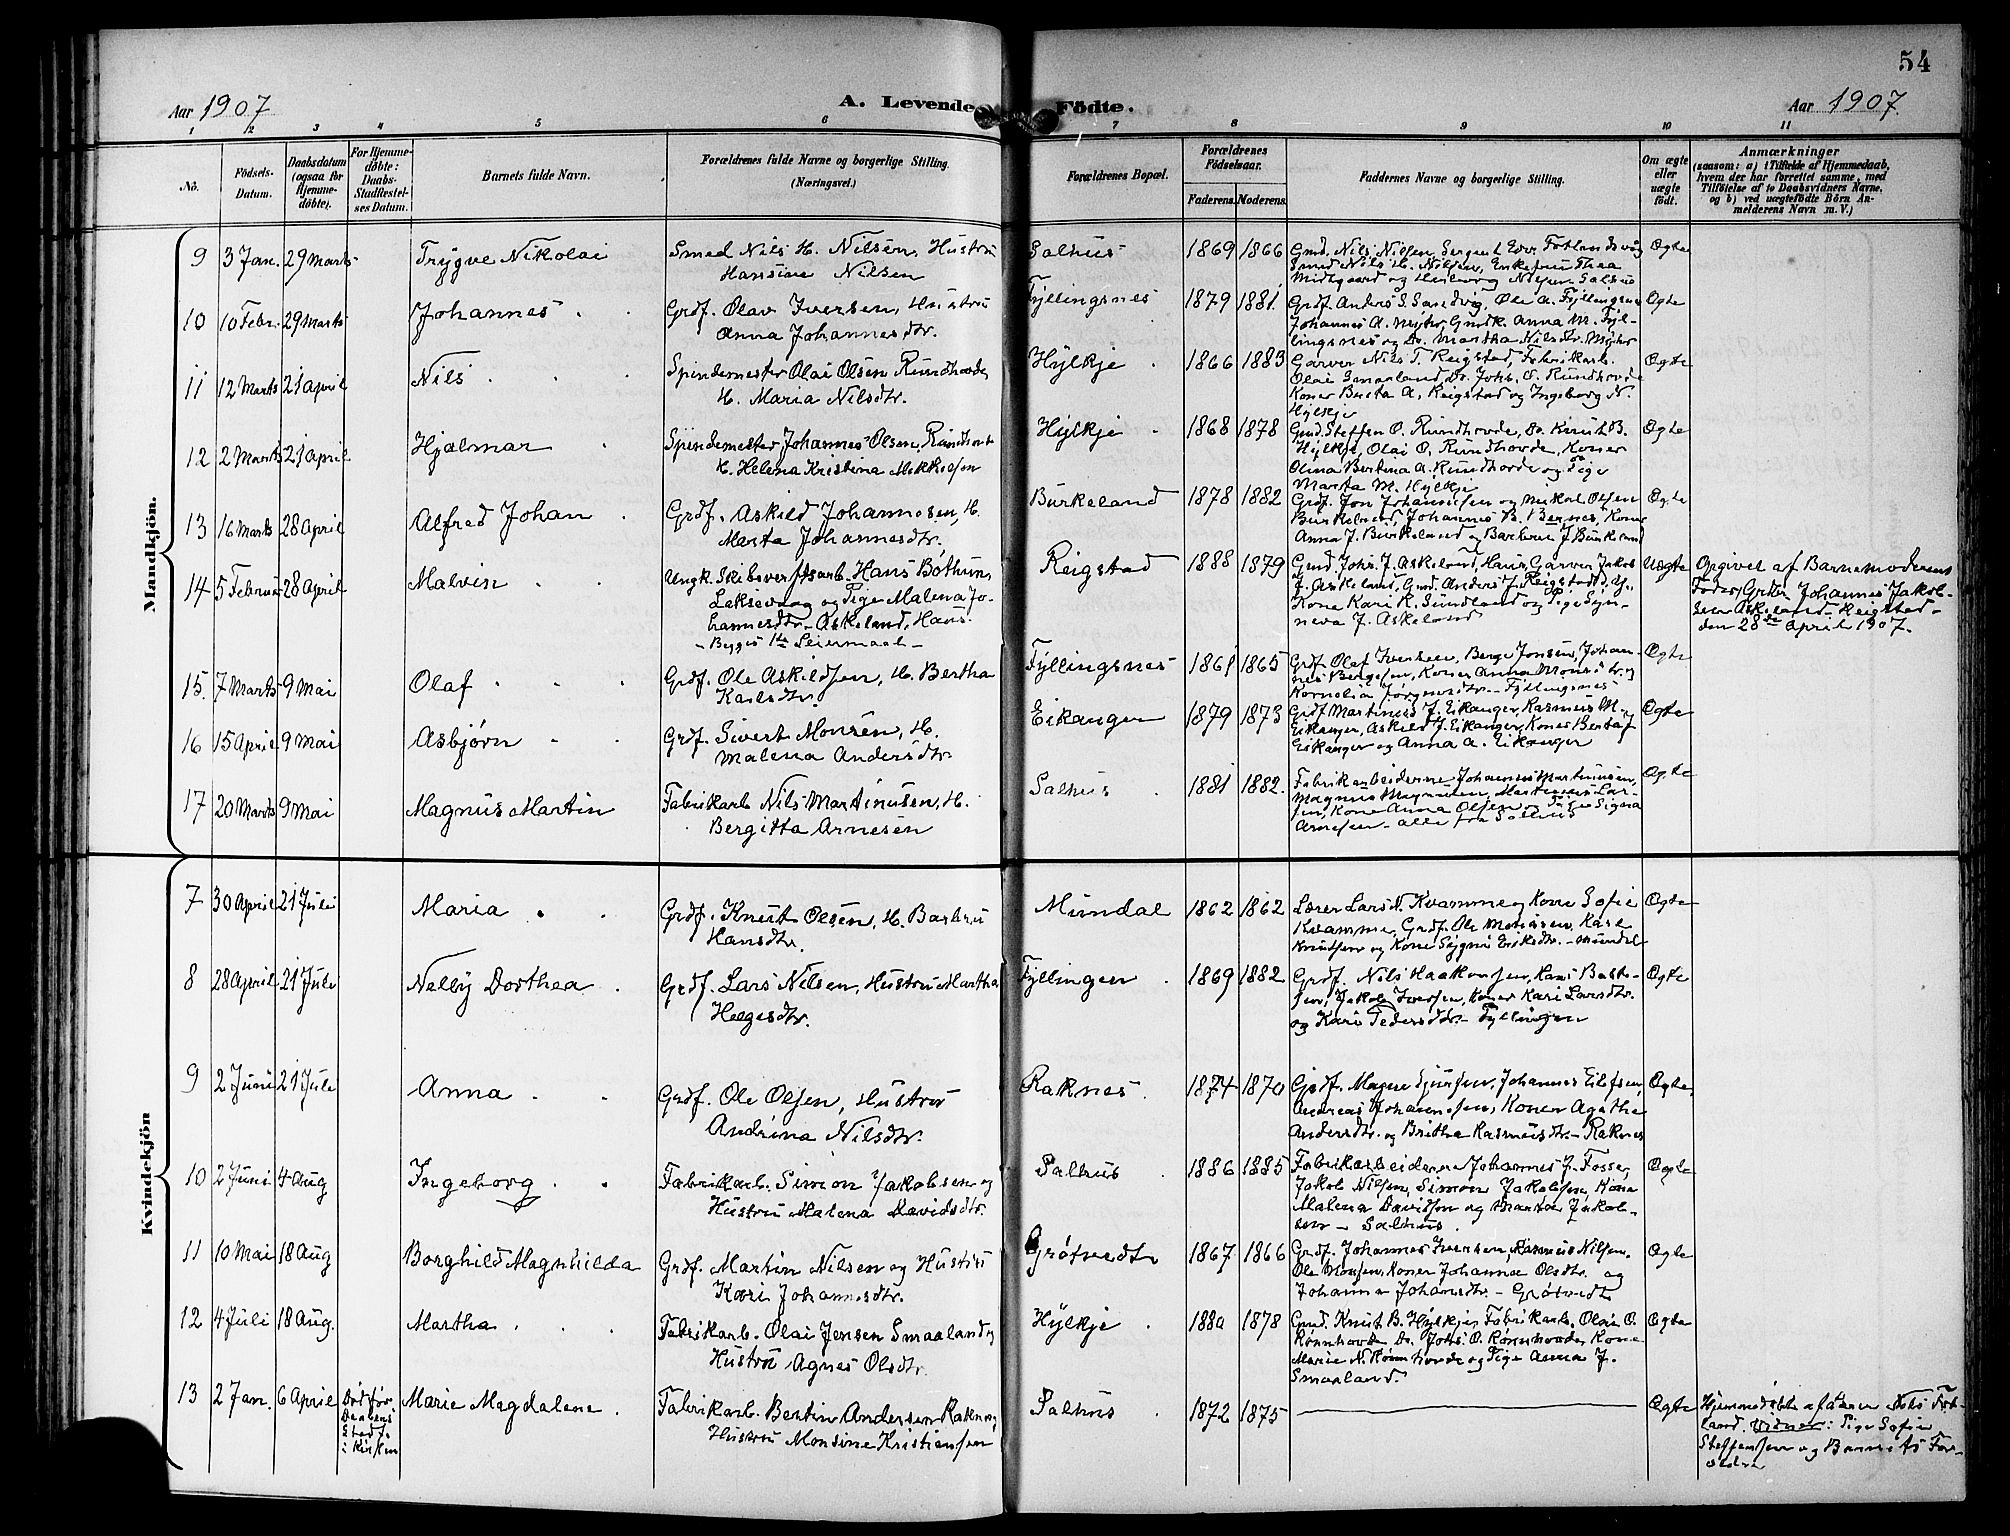 54
Aar 1907
A. Levende Födte.
Aar 1907.
1 2 3 4 5 6 7 8 9 10 11
No.
Födsels-
Datum.
Daabsdatum
(ogsaa for
Hjemme-
döbte).
For Hjemme-
döbte:
Daabs-
Stadfæstel-
ses Datum.
Barnets fulde Navn.
Forældrenes fulde Navne og borgerlige Stilling.
(Næringsvei.)
Forældrenes Bopæl.
Forældrenes
Födselsaar.
Faderens. Moderens.
Faddernes Navne og borgerlige Stilling.
Om ægte
eller
uægte
födt.
Anmærkninger
(saasom: a) i Tilfælde af Hjemmedaab,
hvem der har forrettet samme, med
Tilföielse af to Daabsvidners Navne,
og b) ved uægtefödte Börn An-
melderens Navn m. V.)
Mandkjön.
9 3 Jan. 29 Marts Trygve Nikolai
Smed Nils H. Nilsen, Hustru
Hansine Nilsen
Salhus 1869 1866
Gmd. Nils Nilsen, Sergent
Smed Nils H. Nilsen, Enkefru Thea
Midtgaard og Nilsen Salhus
Ægte
10 10 Febr. 29 Marts Johannes
Grdf. Olav Iversen, Hustru
Anna Johannesdtr.
Fyllingsnes 1879 1881
Grdf. Anders S. Sandvig, Ole A. Fyllingsnes
Johannes A. Gmdk. Anna M. Fyl-
lingsnes og Do. Martha Nilsdtr.
Ægte
11 12 Marts 21 April Nils
Spindemester Olai Olsen Rundhovde
H. Maria Nilsdtr.
Hylkje 1866 1883
Garver Nils T. Reigstad, Fabrikarb.
Olai Smaaland, Do. Johs. O. Rundhovde
Koner Berta A. Reigstad og Ingeborg N.
Hylkje
Ægte
12 2 Marts 21 April Hjalmar
Spindemester Johannes Olsen Rundhovde
H. Helena Kristina Mikkelsen
Hylkje 1868 1878
Gmd. Steffen O. Rundhovde, Do. Knut B.
Hylkje, Olai O. Rundhovde, Koner
Olina Bertina A. Rundhovde og Pige
Marta M. Hylkje
Ægte
13 16 Marts 28 April Alfred Johan
Grdf. Askild Johannesen, H.
Marta Johannesdtr.
Burkeland 1878 1882
Grdf. Jon Johannesen og Mikal Olsen
Burkeland, Johannes B. Bernes, Koner
Anna J. Burkeland og Barbra J. Burkeland
Ægte
14 5 Februar 28 April Malvin
Ungk. Skibsverftsarb. Hans Bøthun,
Laksevaag og Pige Malena Jo-
hannesdtr. Askeland, Hans
- Begges 1ste Leiermaal -
Reigstad 1888 1879
Gmd. Johs. J. Askeland, Haus, Garver Jakob
J. Askeland, Gmd. Anders J. Reigstad,
Kone Kari K. Sundland og Pige Syn-
neva J. Askeland
Uægte
Opgivet af Barnemoderens
Fader, Grdbr Johannes Jakob-
sen Askeland-Reigstad-
den 28de April 1907.
15. 7 Marts 9 Mai Olaf
Grdf. Ole Askildsen, H. Bertha
Karlsdtr.
Fyllingsnes 1861 1865
Grdf. Olaf Iversen, Berge Jonsen, Johan-
nes Bergesen, Koner Anna Monsdtr. og
Kornelia Jørgensdtr. - Fyllingsnes
Ægte
16 15 April 9 Mai Asbjørn
Grdf. Sivert Monsen, H.
Malena Andersdtr.
Eikanger 1879 1873
Grdf Martinus J. Eikanger, Rasmus M.
Eikanger, Askild J. Eikanger, Koner Berta J
Eikanger og Anna A. Eikanger
Ægte
17 20 Marts 9 Mai Magnus Martin
Fabrikarb Nils Martinusen, H.
Bergitta Arnesen
Salhus 1881 1882.
Fabrikarbeiderne Johannes Martinusen,
Magnus Magnusen, Martinus Lar-
sen, Kone Anna Olsen og Pige Signa
Arnesen - alle fra Salhus
Ægte
Kvindekjön
7 30 April 21 Juli Maria
Grdf. Knut Olsen, H. Barbru
Hansdtr.
Mundal 1862 1862
Lærer Lars N. Kvamme og Kone Sofie
Kvamme, Grdf. Ole Monsen, Karl
Knutsen og Kone Sygni Eriksdtr. - Mundal
Ægte
8 28 April 21 Juli Nelly Dorthea
Grdf. Lars Nilsen, Hustru Martha
Helgesdtr.
Fyllingen 1869 1882
Grdf. Nils Haakonsen, Hans
Jakob Iversen, Koner Kari Larsdtr.
og Kari Pedersdtr. - Fyllingen
Ægte
9 2 Juni 21 Juli Anna
Grdf. Ole Olsen, Hustru
Andrina Nilsdtr.
Raknes 1874 1870
Grdf. Magne Sjursen, Johannes Eilefsen
Andreas Johannesen, Koner Agatha
Andersdtr. og Britha Rasmusdtr. - Raknes
Ægte
10 2 Juni 4 Aug Ingeborg
Fabrikarb. Simon Jakobsen og
Hustru Malena Davidsdtr.
Salhus 1886 1885
Fabrikarbeiderne Johannes J. Fosse,
Jakob Nilsen, Simon Jakobsen, Kone
Malena Davidsen og Marta Jakob-
sen - Salhus.
Ægte
11 10 Mai 18 Aug Borghild Magnhilda
Grdf. Martin Nilsen og Hustru
Kari Johannesdtr.
Grøtvedt 1867 1866
Grdf. Johannes Iversen, Rasmus Nilsen,
Ole Monsen, Koner Johanna Olsdtr. og
Johanna Johansdtr. - Grøtvedt
Ægte
12 4 Juli 18 Aug. Martha
Fabrikarb. Olai Jensen Smaaland og
Hustru Agnes Olsdtr.
Hylkje 1880 1878
Gmd. Knut B. Hylkje, Fabrikarb. Olai O.
Rønnhovde Do. Johs. O. Rønnhovde, Kone
Marie N. Rønnhovde og Pige Anna J.
Smaaland.
Ægte
13 2 Jan. 6 April
Død før
Daabens
Stadf.
i Kirken
Marie Magdalene
Fabrikarb. Bertin Andersen Raknes og
Hustru Monsine Kristiensen
Salhus 1872 1875
Ægte
Hjemmedøbt af Nils
land. Vidner: Pige Sofie
Steffensen og Barnets For-
ældre